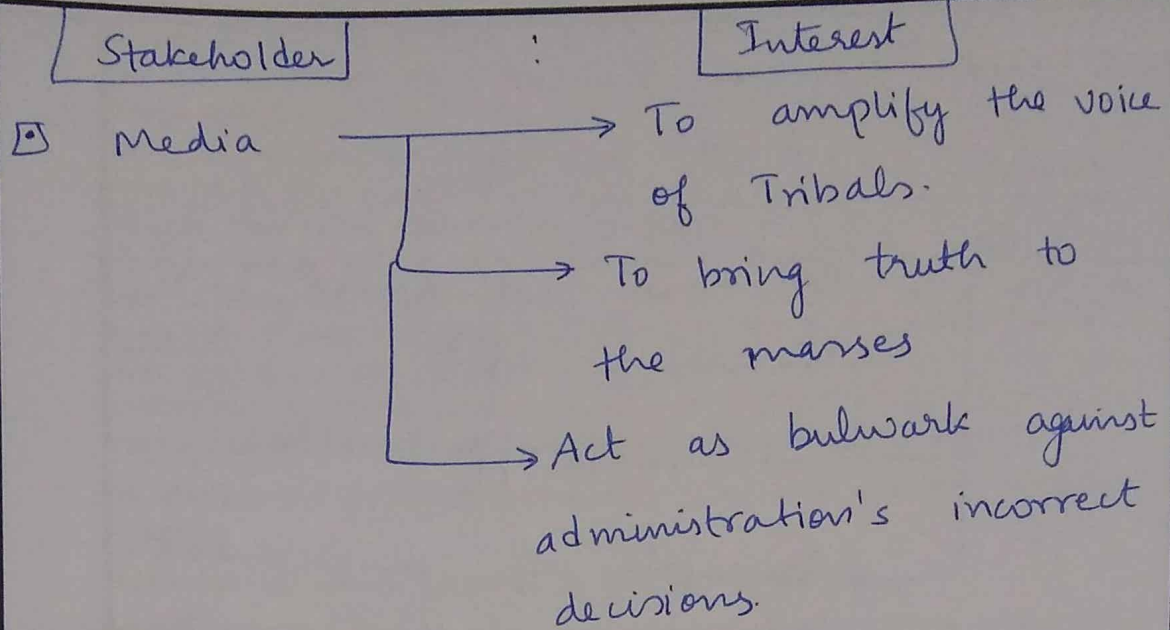 Stakeholder : Interest
Media → To amplify the voice
of Tribals.
→ To bring truth to
the masses
→ Act as bulwark against
administration's incorrect
decisions.